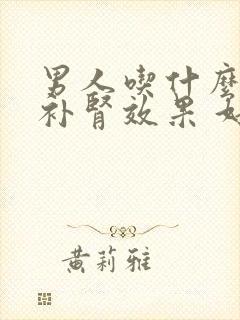 男人喫什麼
补肾效果好
黄莉雅